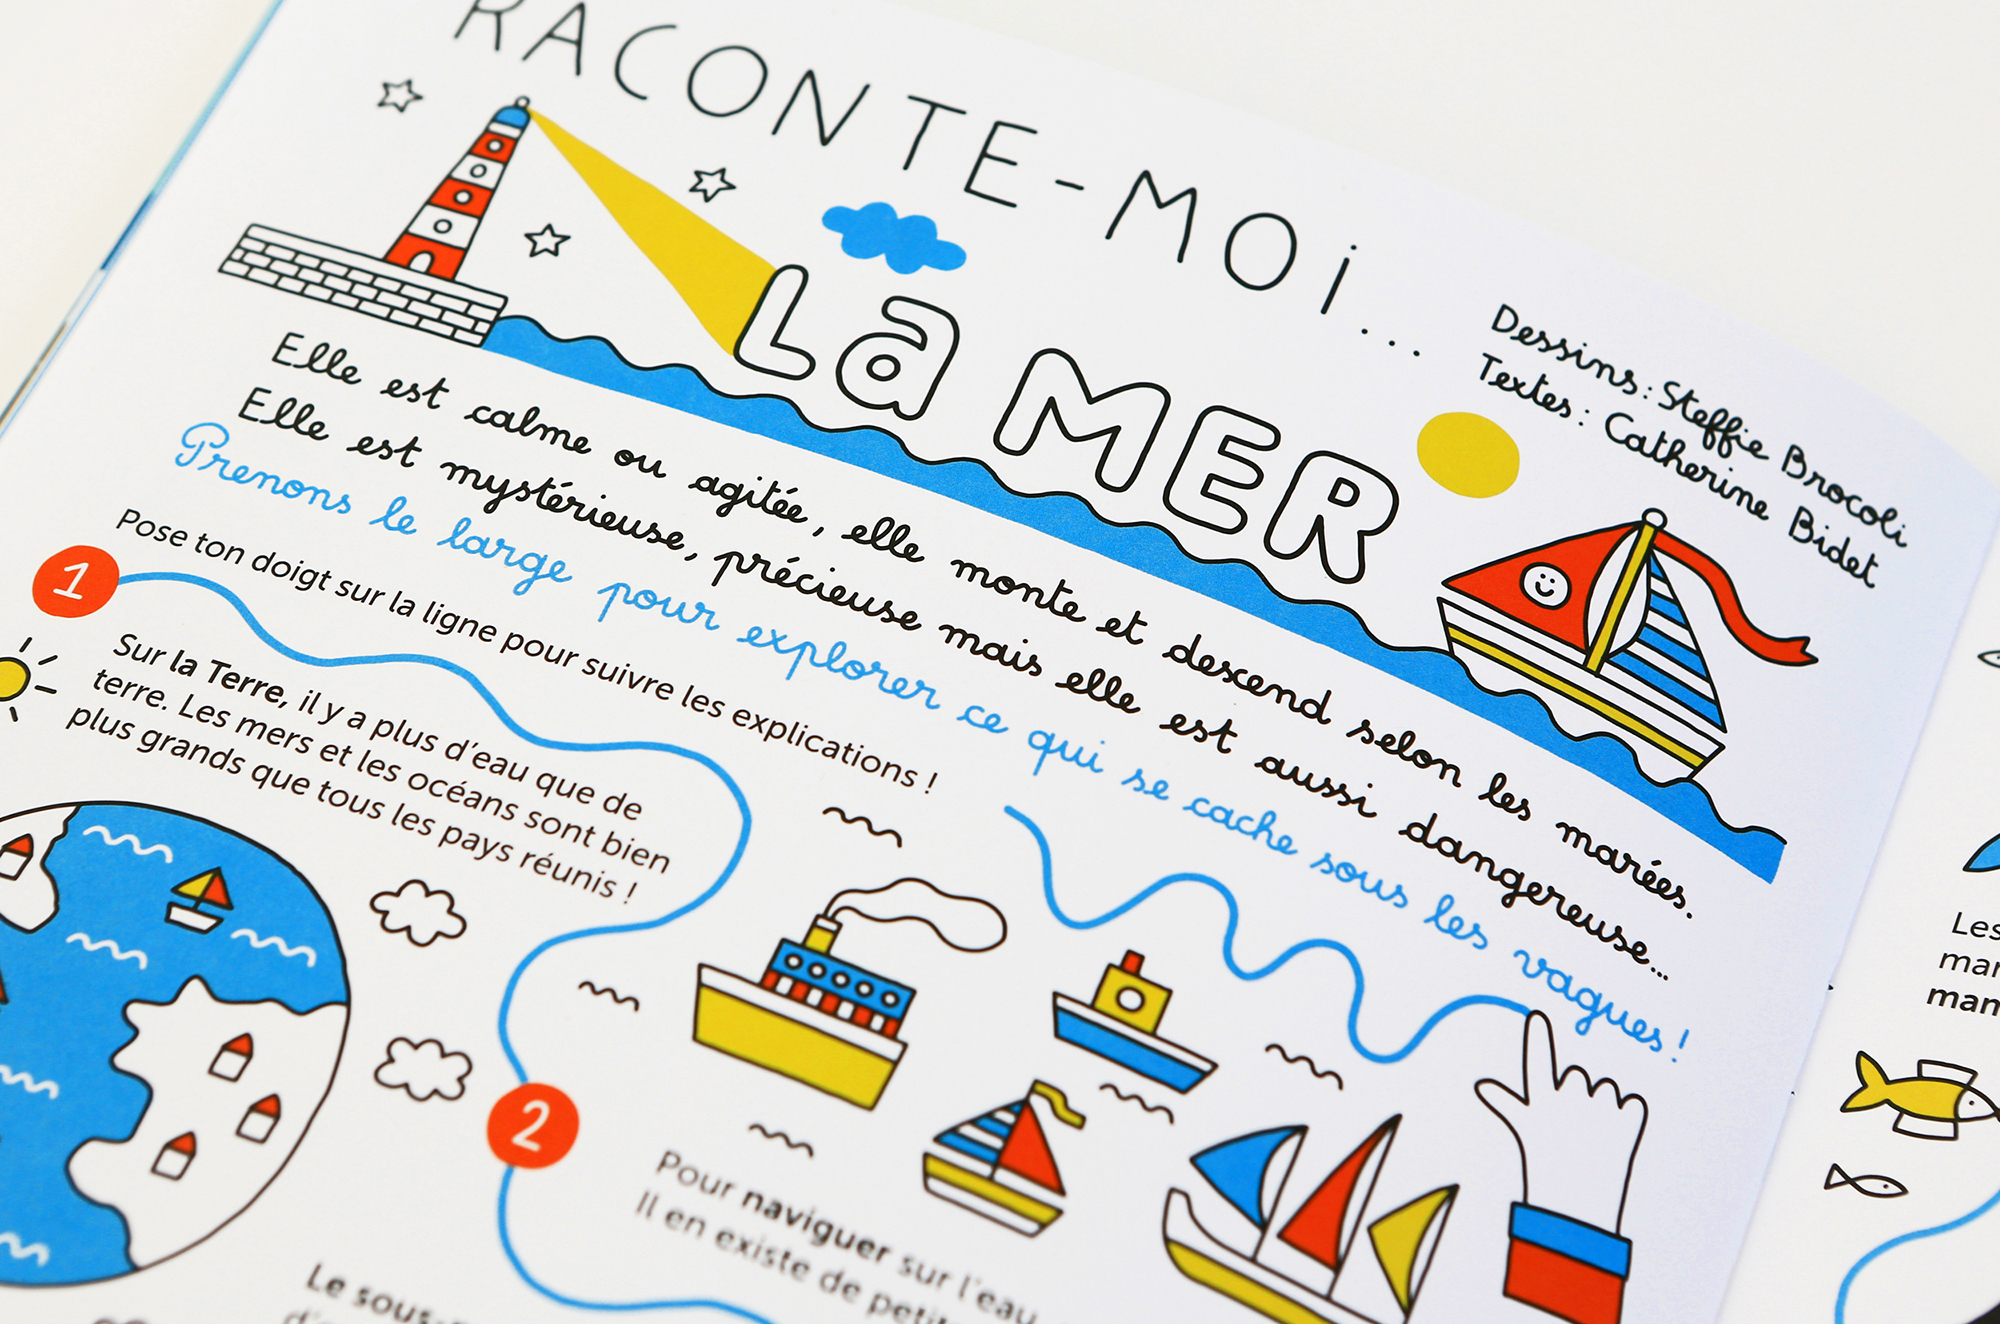 RACONTE-MOi...
La MER
Dessins : Steffie Brocoli
Textes : Catherine Bidet
Elle est calme ou agitée, elle monte et descend selon les marées.
Elle est mystérieuse, précieuse mais elle est aussi dangereuse...
Prenons le large pour explorer ce qui se cache sous les vagues !
Pose ton doigt sur la ligne pour suivre les explications !
1
Sur la Terre, il y a plus d'eau que de
terre. Les mers et les océans sont bien
plus grands que tous les pays réunis !
2
Pour naviguer sur l'eau
Il en existe de
Le
Les